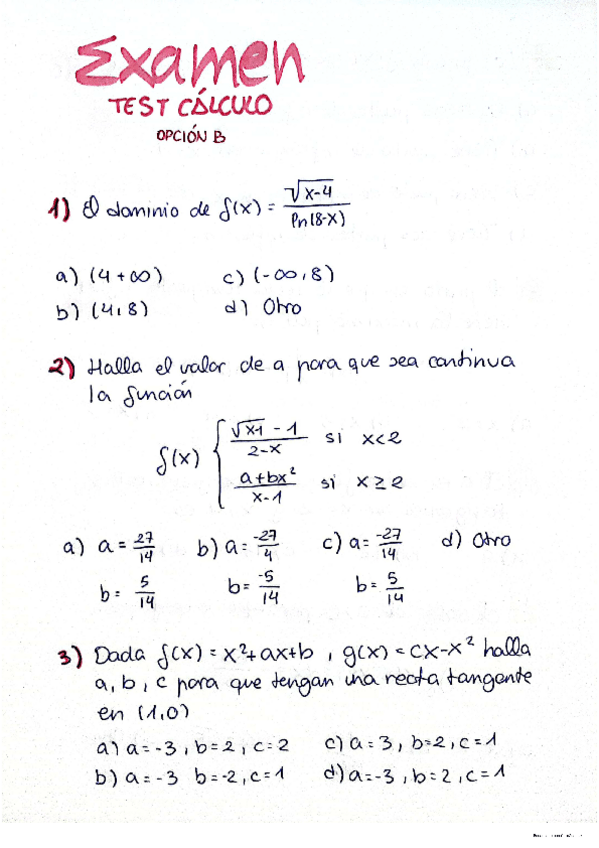 Examen
TEST CÁLCULO
OPCIÓN B
1) El dominio de f(x) = √x-4 / ln(8-x)
a) (4+∞) c) (-∞,8)
b) (4,8) d) Otro
2) Halla el valor de a para que sea continua
la función
f(x) { √x-1 - 1 / 2-x si x<2
a+bx² / x-1 si x≥2
a) a = 27/14 b) a = -27/4 c) a = -27/14 d) Otro
b = 5/14 b = -5/14 b = 5/14
3) Dada f(x) = x²+ax+b , g(x) = cx-x² halla
a, b, c para que tengan una recta tangente
en (1,0)
a) a=-3, b=2, c=2 c) a=3, b=2, c=1
b) a=-3 b=-2, c=1 d) a=-3, b=2, c=1